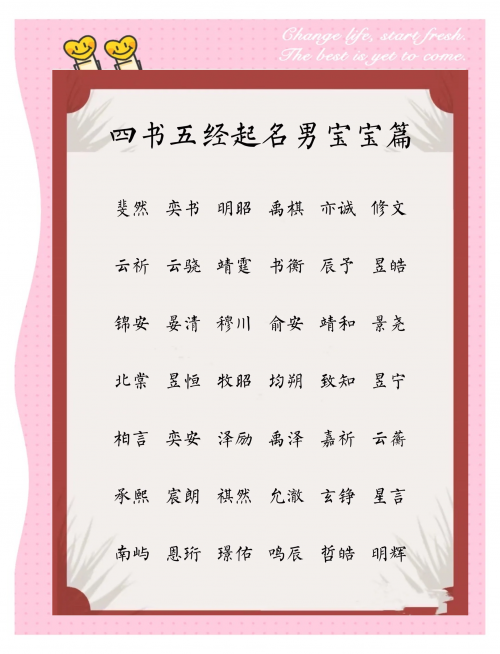 Change life, start fresh.
The best is yet to come.
四书五经起名男宝宝篇
斐然 奕书 明昭 禹棋 亦诚 修文
云祈 云骁 靖霆 书衡 辰予 昱皓
锦安 晏清 穆川 俞安 靖和 景尧
北棠 昱恒 牧昭 均朔 致知 昱宁
柏言 奕安 泽励 禹泽 嘉祈 云蘅
承熙 宸朗 祺然 允澈 玄铮 星言
南屿 恩珩 璟佑 鸣辰 哲皓 明辉